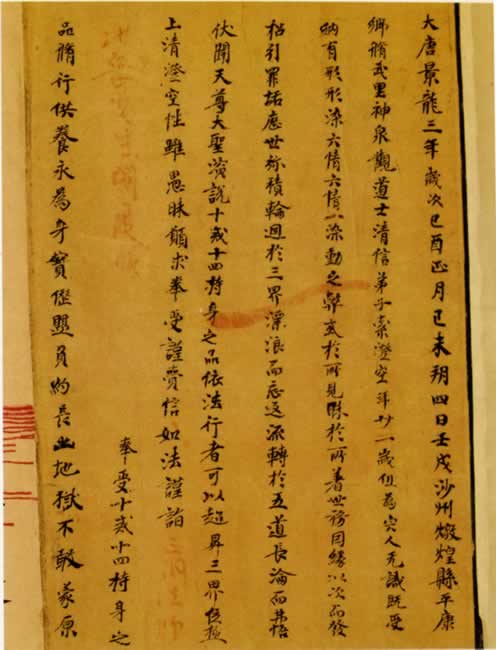 大唐景龍三年歲次己酉正月己未朔四日壬戌沙州燉煌縣平康
鄉脩武里神泉觀道士清信弟子索澄空年廿一歲但為宍人无識既受
納有形形染六情六情一染動之弊或於所見昧於所著世務因緣以次而發
招引罪垢歷世弥積輪迴於三界漂浪而忘返流轉於五道長淪而弗悟
伏聞天尊大聖演說十戒十四持身之品依法行者可以超昇三界位極
上清澄空性雖愚昧願求奉受謹賷信如法謹詣
奉受十戒十四持身之
品脩行供養永為身寶僽盟負約長幽地獄不敢蒙原